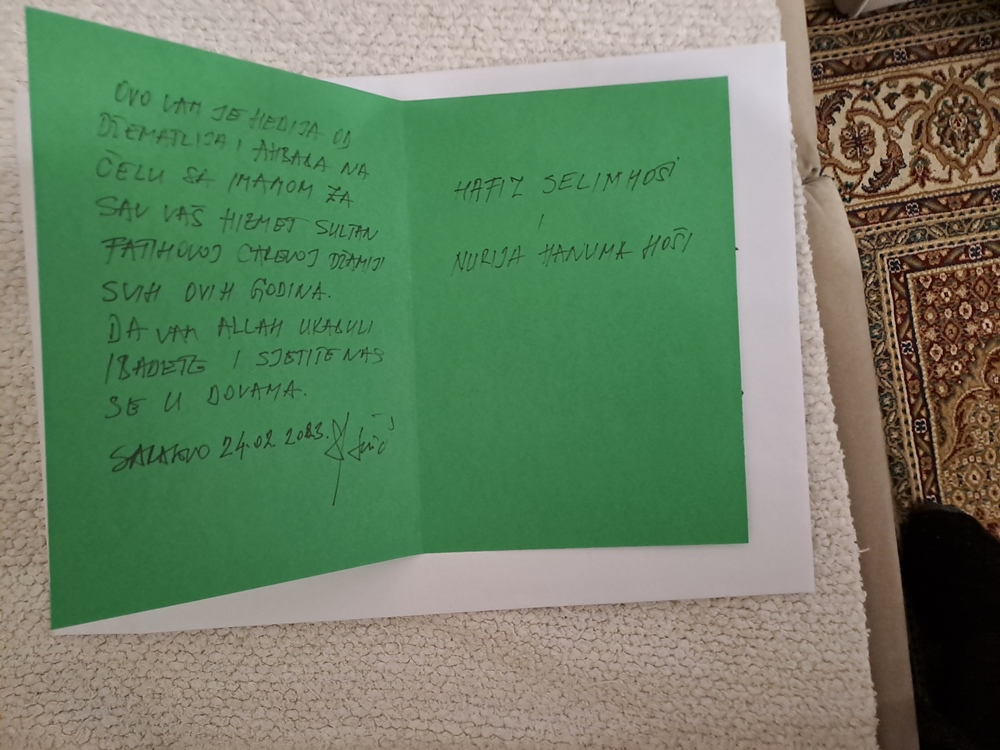 OVO VAM JE HEDIJA OD
DŽEMATLIJA I AHBABA NA
ČELU SA IMAMOM ZA
SAV VAŠ HIZMET SULTAN
FATIHOVOJ CAREVOJ DŽAMIJI
SVIH OVIH GODINA.
DA VAM ALLAH UKABULI
IBADETE I SJETITE NAS
SE U DOVAMA.
SARAJEVO 24.02.2023.
HAFIZ SELIM HOŠI
I
NURIJA HANUMA HOŠI